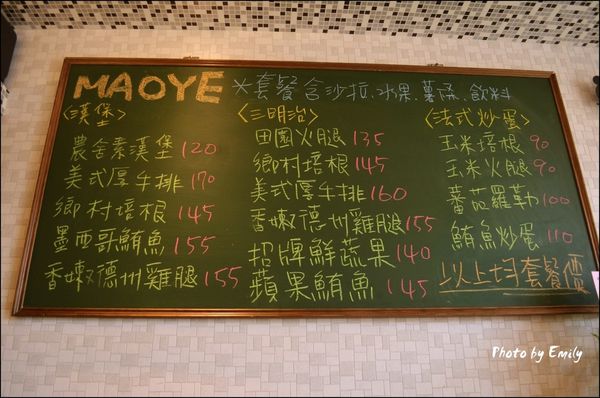 MAOYE ＊套餐含沙拉、水果、薯條、飲料
〈漢堡〉
農舍素漢堡 120
美式厚牛排 170
鄉村培根 145
墨西哥鮪魚 155
香嫩德州雞腿 155
〈三明治〉
田園火腿 135
鄉村培根 145
美式厚牛排 160
香嫩德州雞腿 155
招牌鮮蔬果 140
蘋果鮪魚 145
〈法式炒蛋〉
玉米培根 90
玉米火腿 90
蕃茄羅勒 100
鮪魚炒蛋 110
以上均套餐價
Photo by Emily